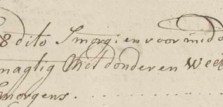 8 dito Smorgiens voor mid
magtig Met donder en Wee
Smorgens